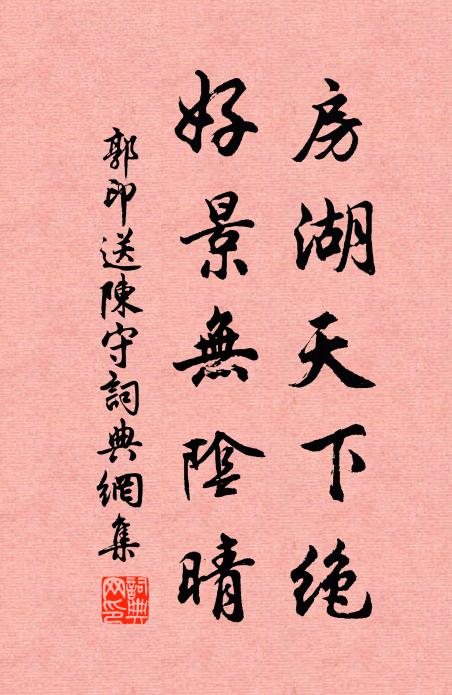 房湖天下绝
好景無陰晴
郭印送陳守詞典網集
詞典網印